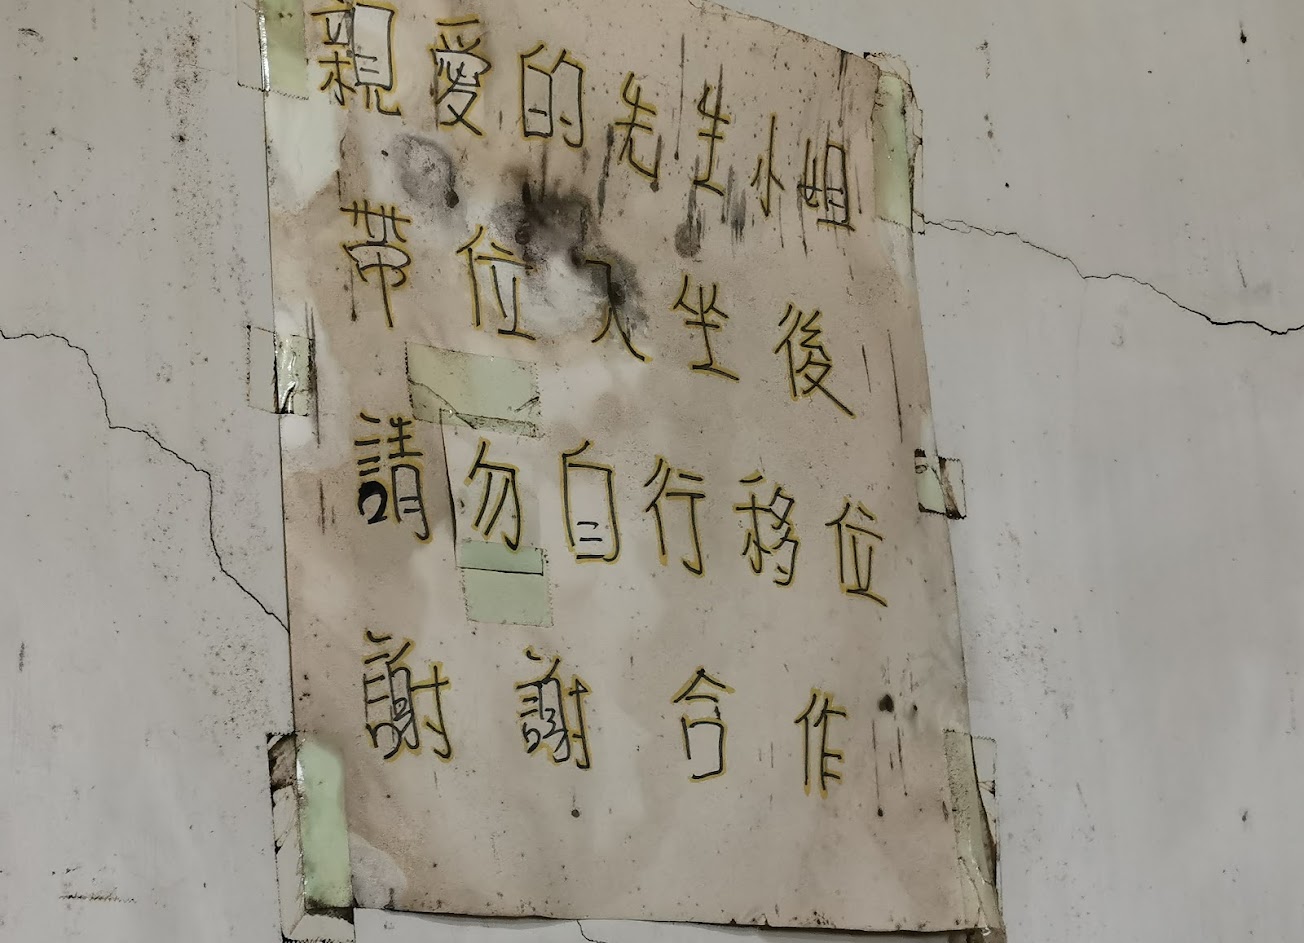 親愛的先生小姐
帶位入坐後
請勿自行移位
謝謝合作